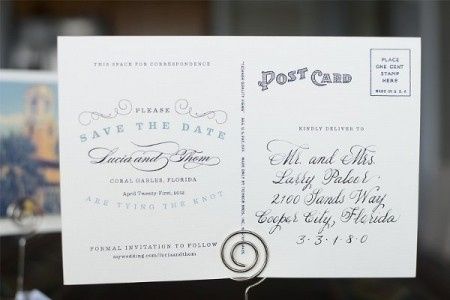 THIS SPACE FOR CORRESPONDENCE
PLEASE
SAVE THE DATE
Lucia and Thom
CORAL GABLES, FLORIDA
April Twenty-First, 2012
ARE TYING THE KNOT
FORMAL INVITATION TO FOLLOW
POST CARD
PLACE
ONE CENT
STAMP
HERE
MADE IN U.S.A
KINDLY DELIVER TO
Mr. and Mrs.
Larry Paloer
2100 Sands Way
Cooper City, Florida
3·3·1·8·0